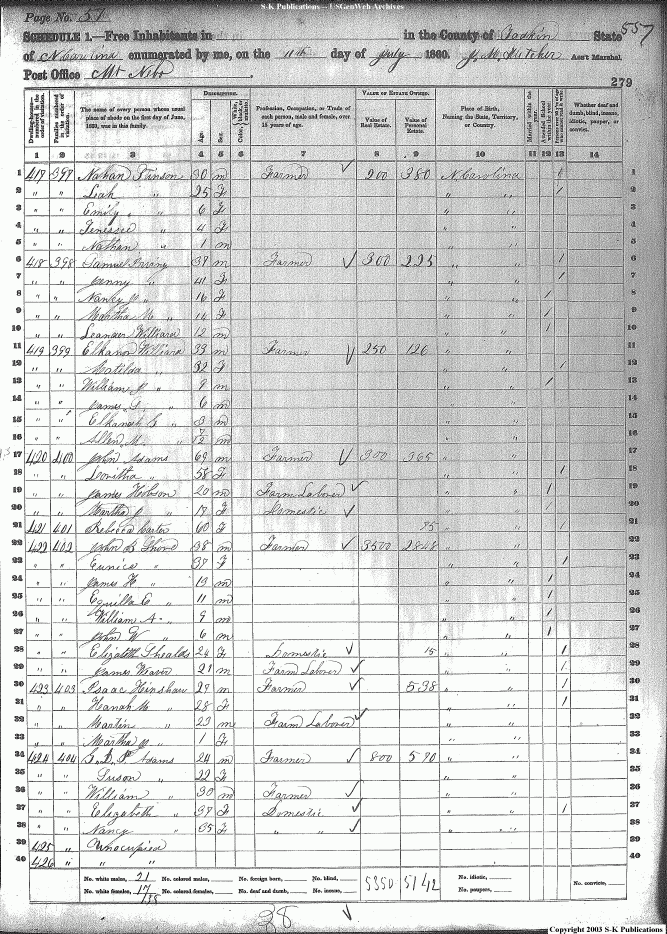 S-K Publications -- USGenWeb Archives
Page No. 57
557
SCHEDULE 1.—Free Inhabitants in in the County of Yadkin State
of N Carolina enumerated by me, on the 11th day of July 1860. Ass't Marshal.
Post Office Mt Nebo
279
Dwelling-houses—numbered in the order of visitation.
Families numbered in the order of visitation.
The name of every person whose usual place of abode on the first day of June, 1860, was in this family.
DESCRIPTION.
Age. Sex. Color, White, black, or mulatto.
Profession, Occupation, or Trade of each person, male and female, over 15 years of age.
VALUE OF ESTATE OWNED.
Value of Real Estate. Value of Personal Estate.
Place of Birth, Naming the State, Territory, or Country.
Married within the year.
Attended School within the year.
Whether deaf and dumb, blind, insane, idiotic, pauper, or convict.
1 2 3 4 5 6 7 8 9 10 11 12 13 14
1 417 397 Nathan Stinson 30 m Farmer ✓ 200 380 N. Carolina / 1
2 " " Leah " 25 F " " / 2
3 " " Emily " 6 F " " 3
4 " " Tenessee " 4 F " " 4
5 " " Nathan " 1 m " " 5
6 418 398 Samuel 39 m Farmer ✓ 300 225 " " / 6
7 " " " 41 F " " / 7
8 " " Nancy " 16 F " " / 8
9 " " Martha M " 14 F " " / 9
10 " " Leander Williard 12 m " " / 10
11 419 399 Elkanah Williard 33 m Farmer ✓ 250 126 " " 11
12 " " Matilda " 32 F " " / 12
13 " " William " 9 m " " / 13
14 " " James " 6 m " " 14
15 " " Elkanah " 3 m " " 15
16 " " Allen M. " 7/12 m " " 16
17 420 400 John Adams 69 m Farmer ✓ 300 365 " " 17
18 " " " 58 F " " / 18
19 " " James Hobson 20 m Farm Laborer ✓ " " / 19
20 " " Martha " 17 F Domestic ✓ " " 20
21 421 401 Rebecca Carter 60 F 75 " " 21
22 422 402 John Shore 38 m Farmer ✓ 3500 2848 " " 22
23 " " Eunice " 37 F " " / 23
24 " " James H " 13 m " " / 24
25 " " " 11 m " " / 25
26 " " William A. " 9 m " " / 26
27 " " John W " 6 m " " / 27
28 " " Elizabeth Shealds 24 F Domestic ✓ 15 " " / 28
29 " " James Weaver 21 m Farm Laborer ✓ " " / 29
30 423 403 Isaac Hinshaw 29 m Farmer ✓ 538 " " / 30
31 " " Hanah M " 28 F " " / 31
32 " " Martin " 23 m Farm Laborer ✓ " " 32
33 " " Martha " 1 F " " 33
34 424 404 Adams 24 m Farmer ✓ 800 590 " " 34
35 " " Suson " 22 F " " 35
36 " " William " 30 m Farmer ✓ " " 36
37 " " Elizabeth " 37 F Domestic ✓ " " / 37
38 " " Nancy " 35 F " " ✓ " " 38
39 425 " Unocupied 39
40 426 " " " 40
No. white males, 21 No. colored males, No. foreign born, No. blind, 5350 5142 No. idiotic, No. convicts,
No. white females, 17 No. colored females, No. deaf and dumb, No. insane, No. paupers,
38
38 ✓
Copyright 2003 S-K Publications